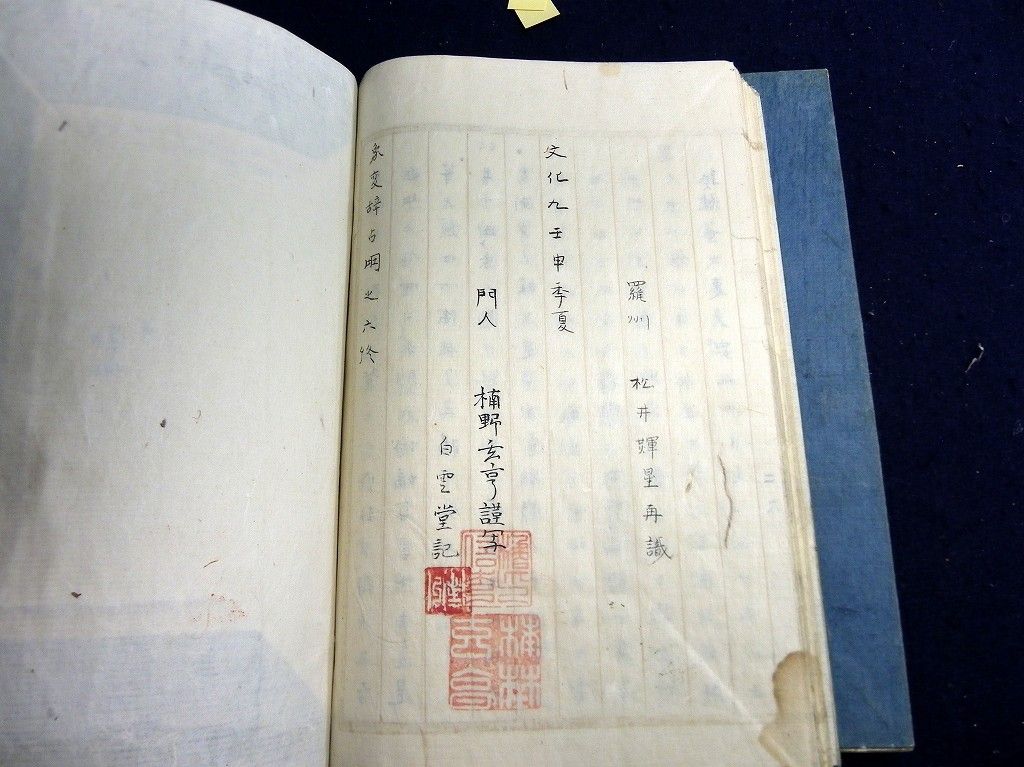 羅州 松井輝星再識
文化九壬申季夏
門人 楠野玄亨謹写
白雲堂記
象変辞占明之六終